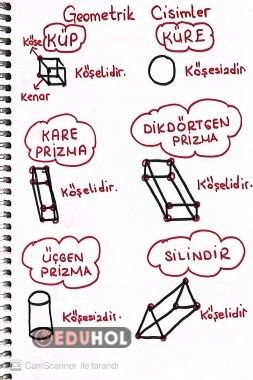 Geometrik Cisimler
Köşe
KÜP
KÜRE
Köşelidir.
Köşesizdir
Kenar
KARE
PRİZMA
DİKDÖRTGEN
PRİZMA
Köşelidir.
Köşelidir.
ÜÇGEN
PRİZMA
SİLİNDİR
Köşesizdir.
Köşelidir
EDUHOL
CS CamScanner ile tarandı